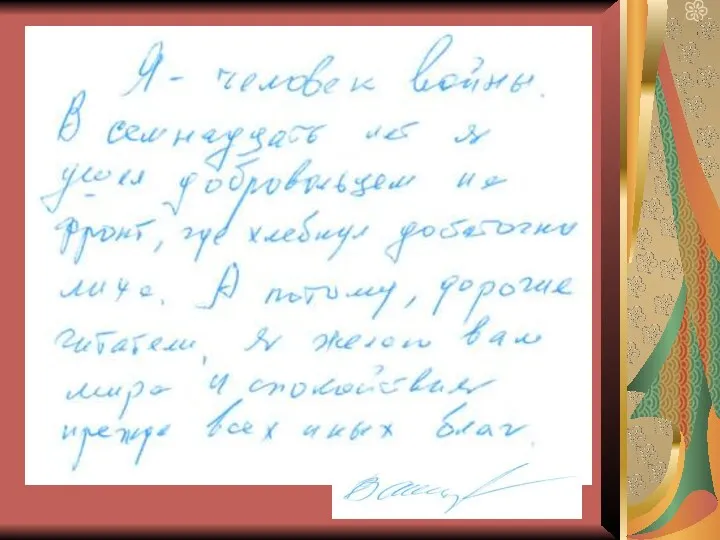 Я - человек войны.
В семнадцать лет я
ушел добровольцем на
фронт, где хлебнул достаточно
лиха. А потому, дорогие
читатели, я желаю вам
мира и спокойствия
прежде всех иных благ.